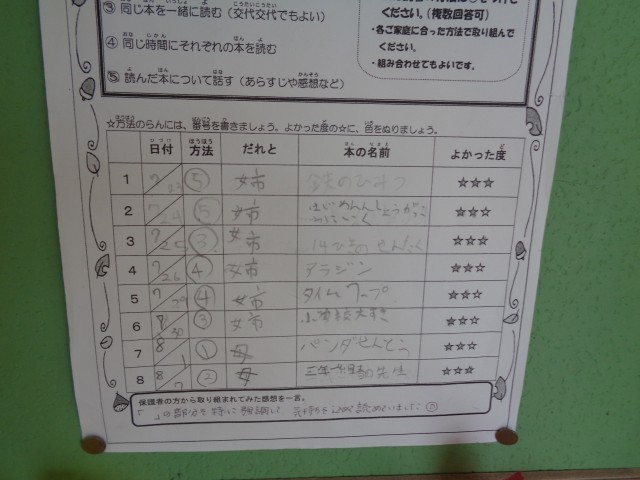 ③ 同じ本を一緒に読む(交代交代でもよい)
④ 同じ時間にそれぞれの本を読む
⑤ 読んだ本について話す(あらすじや感想など)
ください。(複数回答可)
・各ご家庭に合った方法で取り組んで
ください。
・組み合わせてもよいです。
☆方法のらんには、番号を書きましょう。よかった度の☆に、色をぬりましょう。
日付 方法 だれと 本の名前 よかった度
1 7/23 ⑤ 姉 鉄のひみつ ☆☆☆
2 7/24 ⑤ 姉 ☆☆☆
3 7/25 ③ 姉 14ひきのせんたく ☆☆☆
4 7/26 ④ 姉 アラジン ☆☆☆
5 7/29 ④ 姉 タイムワープ ☆☆☆
6 7/30 ③ 姉 大すき ☆☆☆
7 8/1 ① 母 パンダせんとう ☆☆☆
8 8/7 ② 母 三年 の先生 ☆☆☆
保護者の方から取り組まれてみた感想を一言。
「 」の部分を特に強調して 気持ちを 読めていました